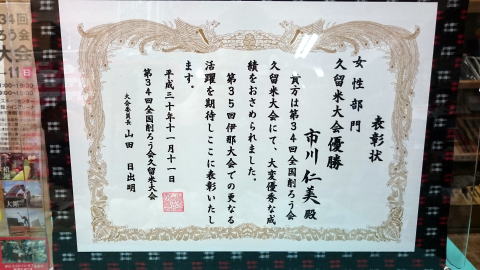 表彰状
女性部門
久留米大会優勝
市川 仁美 殿
貴方は第34回全国削ろう会
久留米大会にて、大変優秀な成
績をおさめられました。
第35回伊那大会での更なる
活躍を期待しここに表彰いたし
ます。
平成三十年十一月十一日
第34回全国削ろう会久留米大会
大会委員長 山田 日出明
34回
ろう会
大会